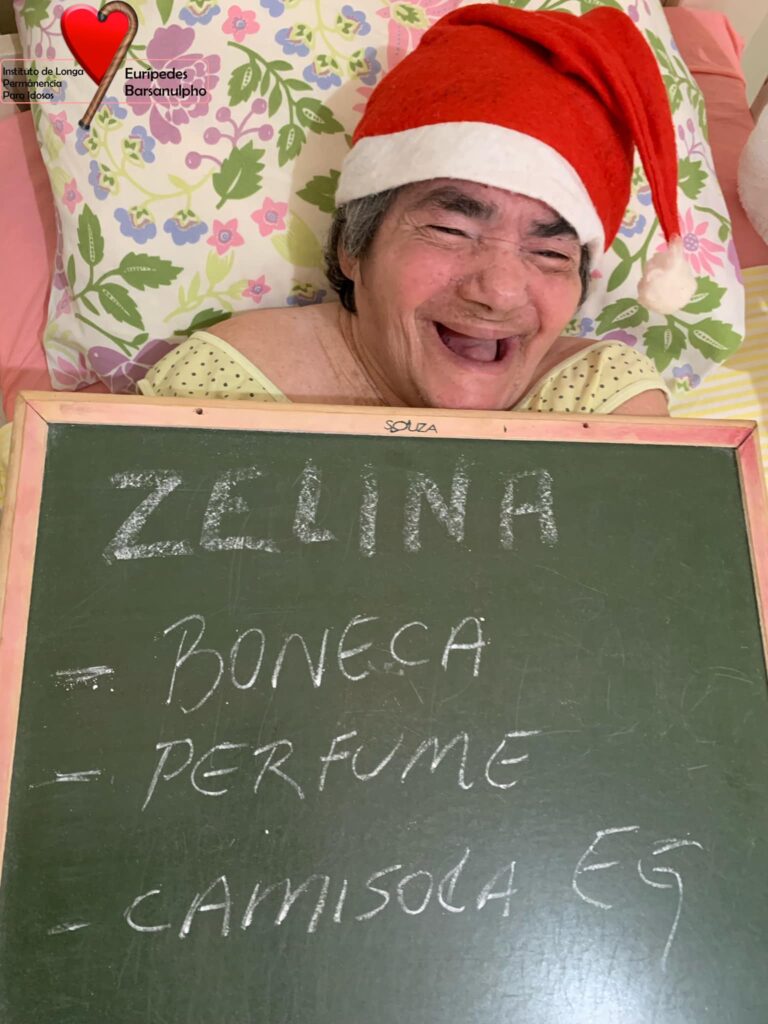 Instituto de Longa
Permanência
Para Idosos
Eurípedes
Barsanulpho
SOUZA
ZELINA
- BONECA
- PERFUME
- CAMISOLA EG